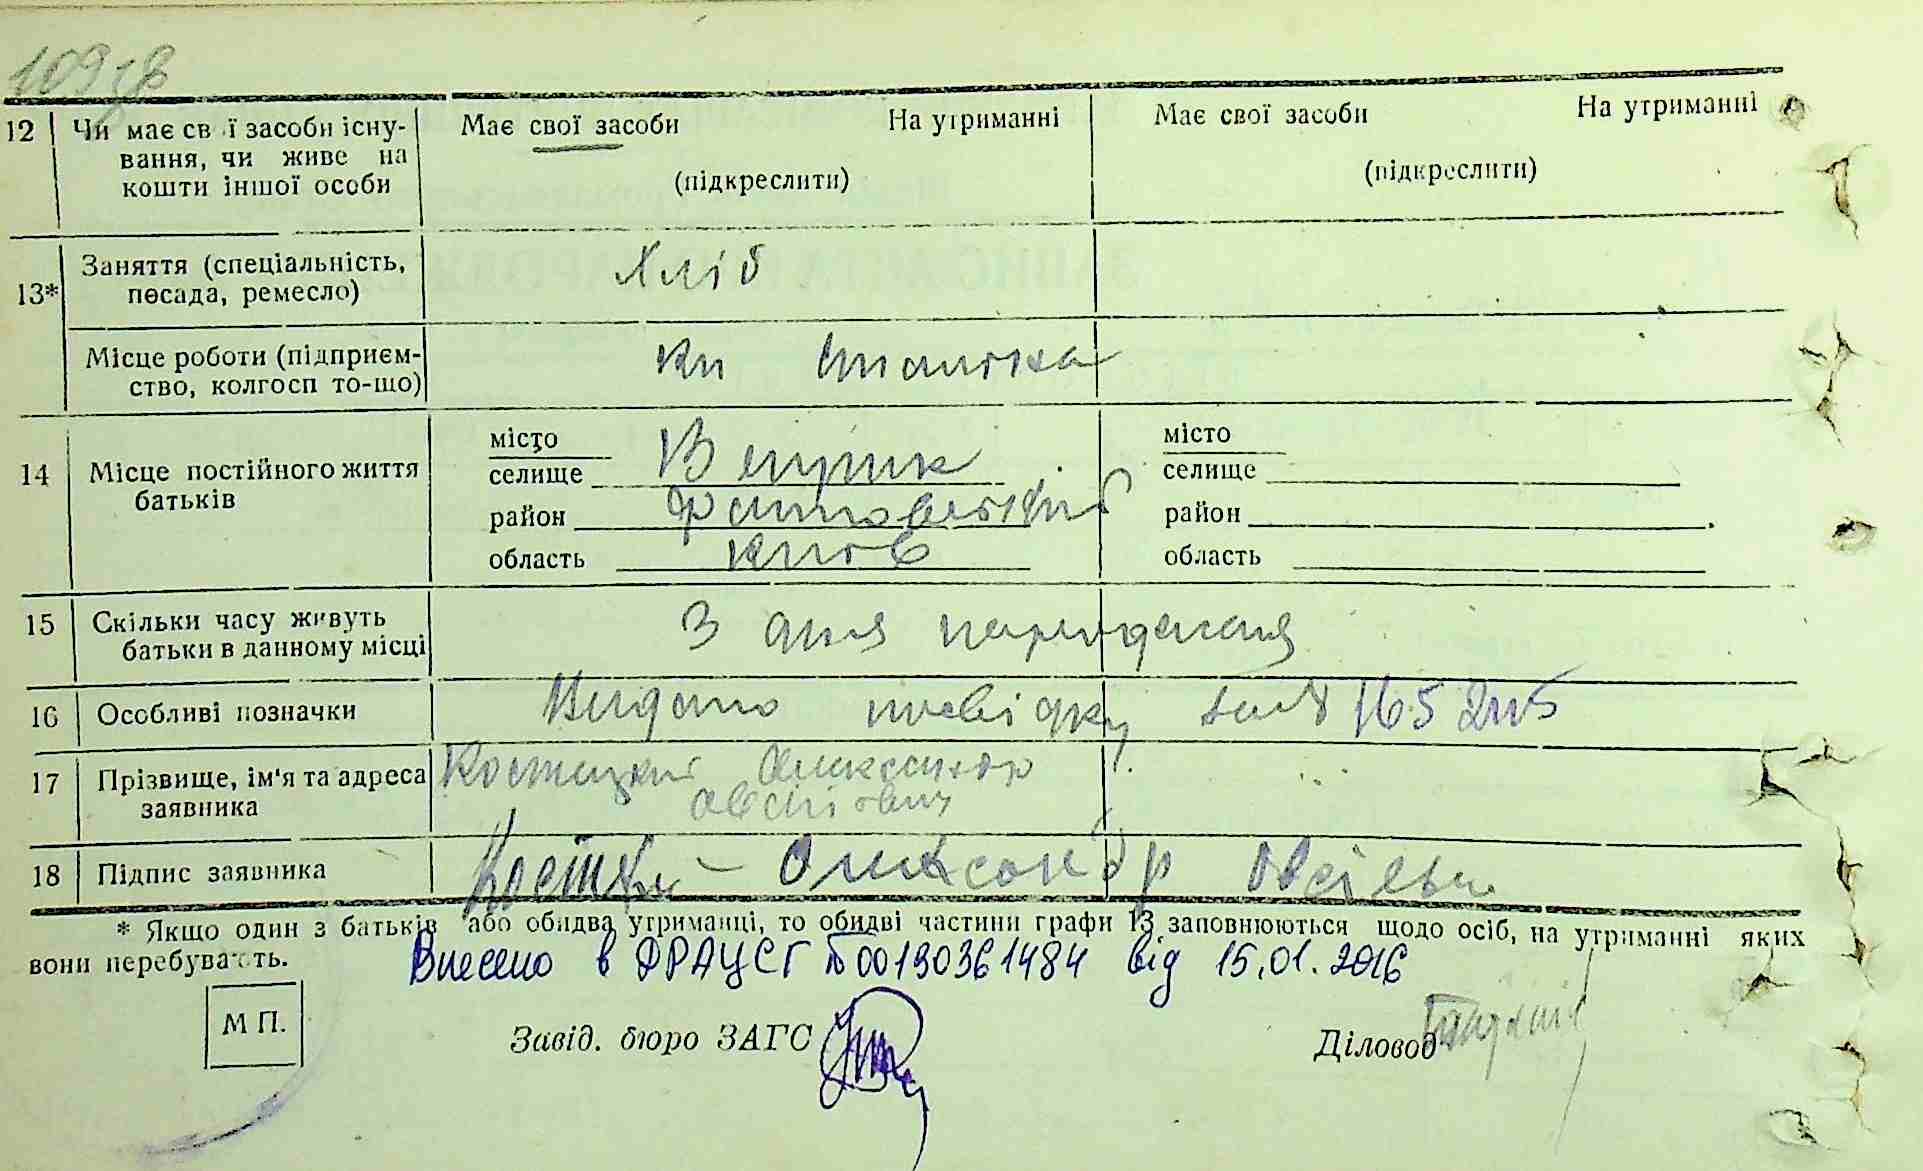 109 зв
12 Чи має св ї засоби існу- Має свої засоби На утриманні Має свої засоби На утриманні
вання, чи живе на
кошти іншої особи (підкреслити) (підкреслити)
Заняття (спеціальність, Хліб
13* посада, ремесло)
Місце роботи (підприєм- Кп Сталіна
ство, колгосп то-що)
місто місто
14 Місце постійного життя селище Веприк селище
батьків район Фастовський район
область Київ область
15 Скільки часу живуть З дня народження
батьки в данному місці
16 Особливі позначки Видано посвідку 165
17 Прізвище, ім'я та адреса Костицкий Александр
заявника Овсійович
18 Підпис заявника Олександр
* Якщо один з батьків або обидва утриманці, то обидві частини графи 13 заповнюються щодо осіб, на утриманні яких
вони перебувають.
Внесено в ДРАЦСГ № 00130361484 від 15.01.2016
М П. Завід. бюро ЗАГС Діловод